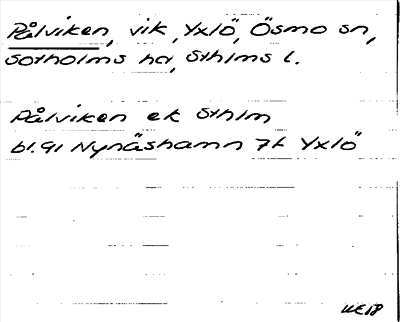 Pålviken, vik, Yxlö, Ösmo sn,
Sotholms hd, Sthlms l.
Pålviken ek Sthlm
bl. 91 Nynäshamn 7f Yxlö